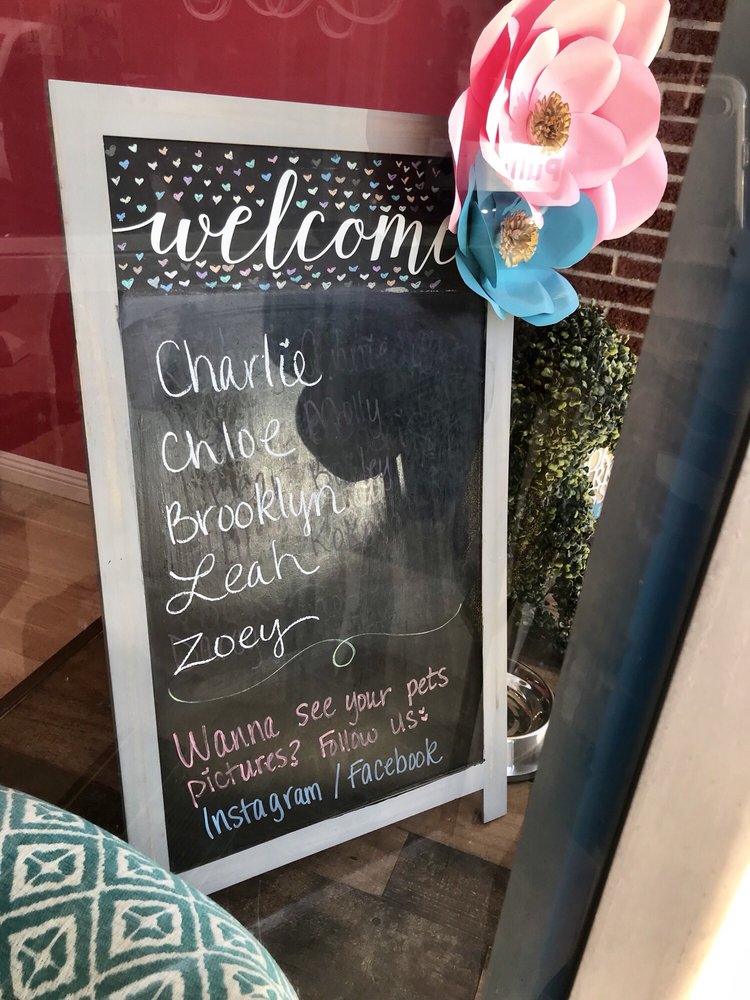 welcome
Charlie
Chloe Molly
Brooklyn
Leah
Zoey
Wanna see your pets
pictures? Follow us
Instagram / Facebook